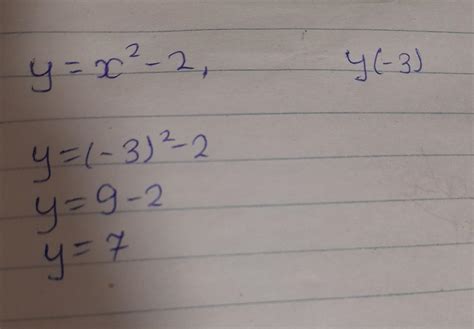 y = x² - 2,    y(-3)
y = (-3)² - 2
y = 9 - 2
y = 7